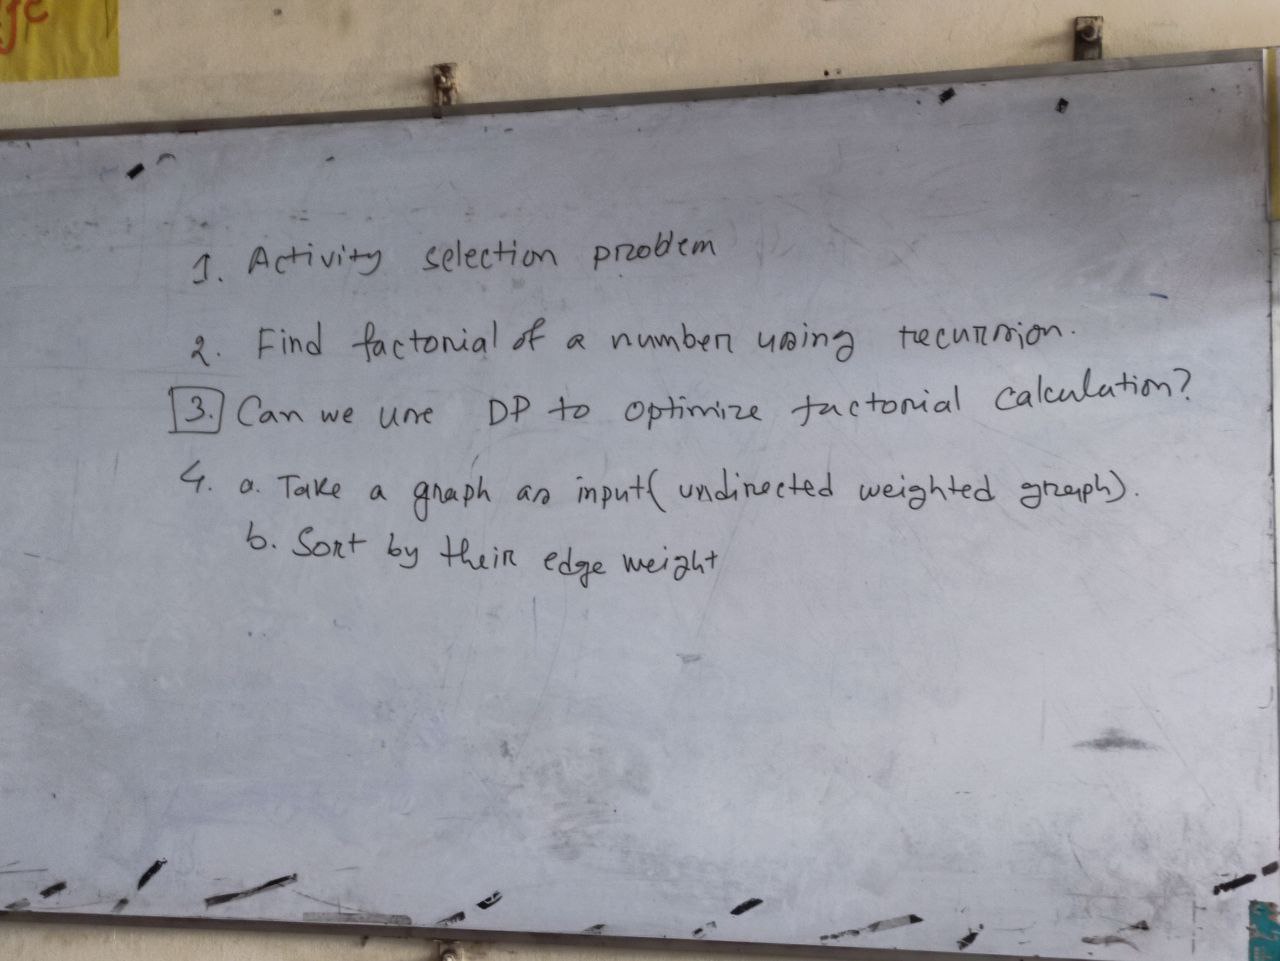 1. Activity selection problem
2. Find factorial of a number using recursion.
3. Can we use DP to optimize factorial calculation?
4. a. Take a graph as input( undirected weighted graph).
b. Sort by their edge weight